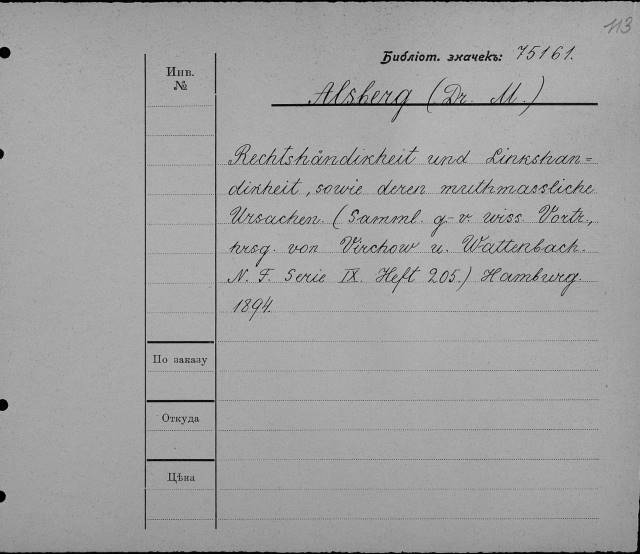 113
Библіот. значекъ: 75161.
Инв.
№
Alsberg (Dr. M.)
Rechtshändikheit und Linkshan=
dikheit, sowie deren muthmassliche
Ursachen. (Samml. g-v. wiss. Vortr.,
hrsg. von Virchow u. Wattenbach.
N. F. Serie IX. Heft 205.) Hamburg.
1894.
По заказу
Откуда
Цѣна